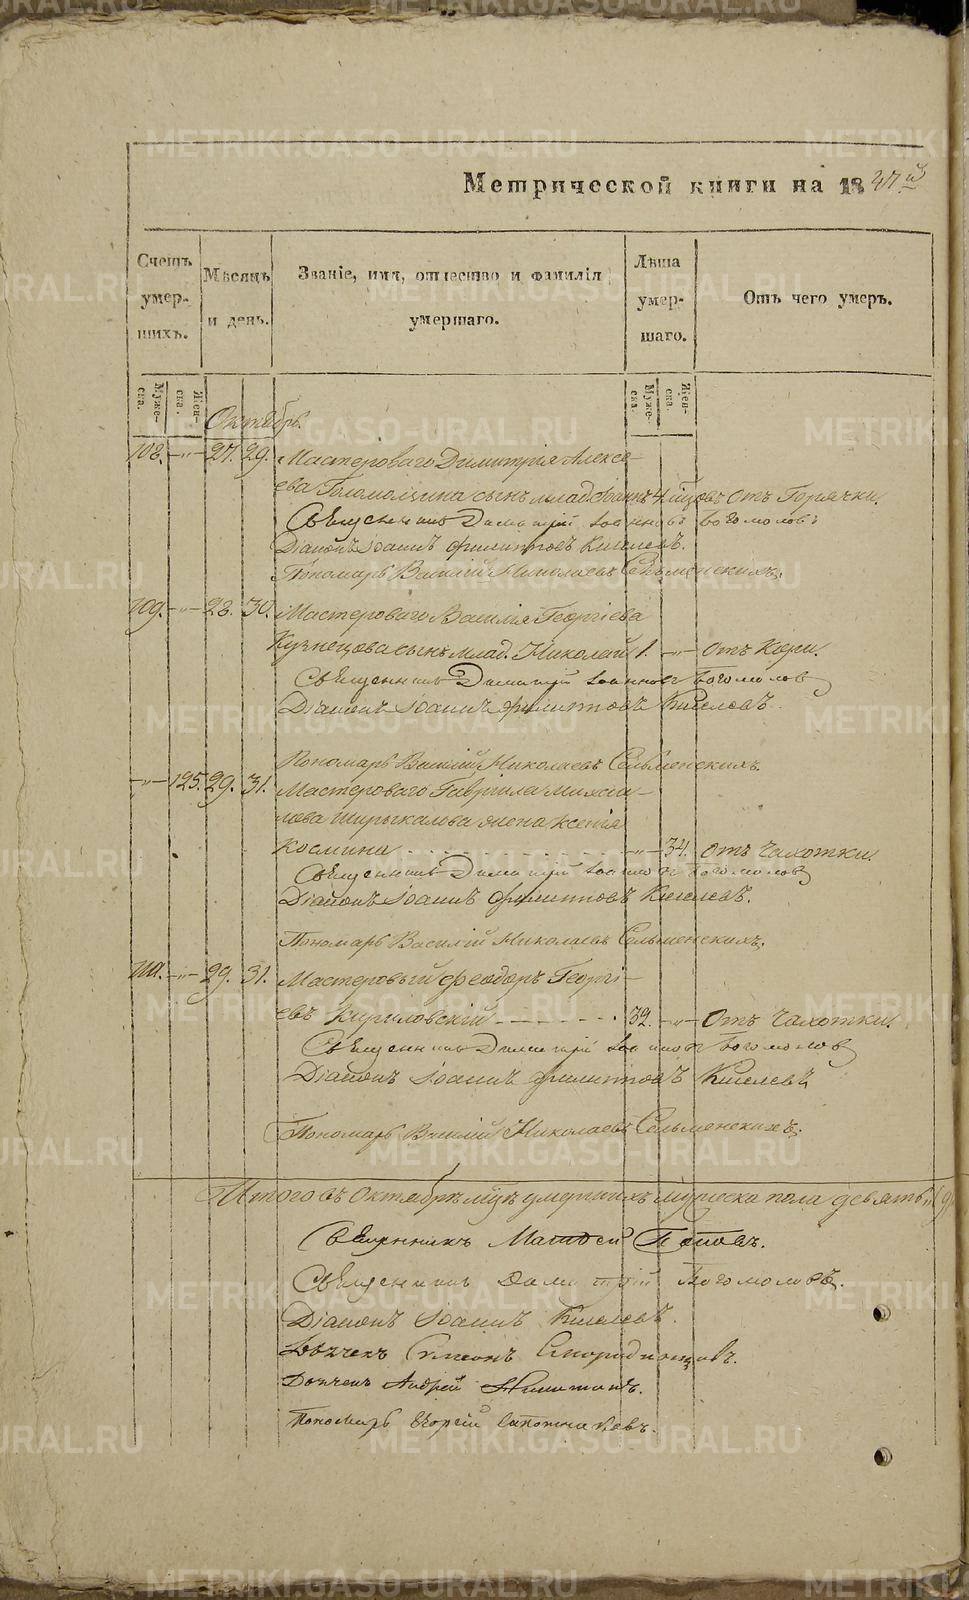 Метрической книги на 1837й
Счетъ умер-шихъ.
Мѣсяцъ и день.
Званіе, имя, отчество и фамилія умершаго.
Лѣта умер-шаго.
Отъ чего умеръ.
Муже-ска.
Жен-ска.
Муже-ска.
Жен-ска.
Октябрь.
108. -„- 27. 29. Мастероваго Димитрія Алексѣ-
ева сынъ млад. Іоаннъ 4 мѣсяцовъ Отъ Горячки.
Священникъ Димитрій Іоанновъ Богомоловъ
Діаконъ Іоаннъ Филипповъ Киселевъ.
Пономарь Василій Николаевъ Сельменскихъ.
109. -„- 28. 30. Мастероваго Василія Георгіева
Кузнецова сынъ млад. Николай 1. -„- Отъ Кори.
Священникъ Димитрій Іоанновъ Богомоловъ
Діаконъ Іоаннъ Филипповъ Киселевъ.
Пономарь Василій Николаевъ Сельменскихъ.
-„- 125. 29. 31. Мастероваго Гавріила Михаи-
лова Ширыкалова жена Ксенія
Космина -„- 34. Отъ Чахотки.
Священникъ Димитрій Іоанновъ Богомоловъ
Діаконъ Іоаннъ Филипповъ Киселевъ.
Пономарь Василій Николаевъ Сельменскихъ.
110. -„- 29. 31. Мастеровый Феодоръ Георгі-
евъ Кириловскій 39. -„- Отъ Чахотки.
Священникъ Димитрій Іоанновъ Богомоловъ
Діаконъ Іоаннъ Филипповъ Киселевъ
Пономарь Василій Николаевъ Сельменскихъ.
Итого въ Октябрѣ мцѣ умершихъ мужеска пола девять (9)
Священникъ Матфей Поповъ.
Священникъ Димитрій Богомоловъ.
Діаконъ Іоаннъ Киселевъ.
Дьячекъ Симеонъ Смородинцовъ.
Дьячекъ Андрей Никитинъ.
Пономарь Георгій Сапожниковъ.
METRIKI.GASO-URAL.RU